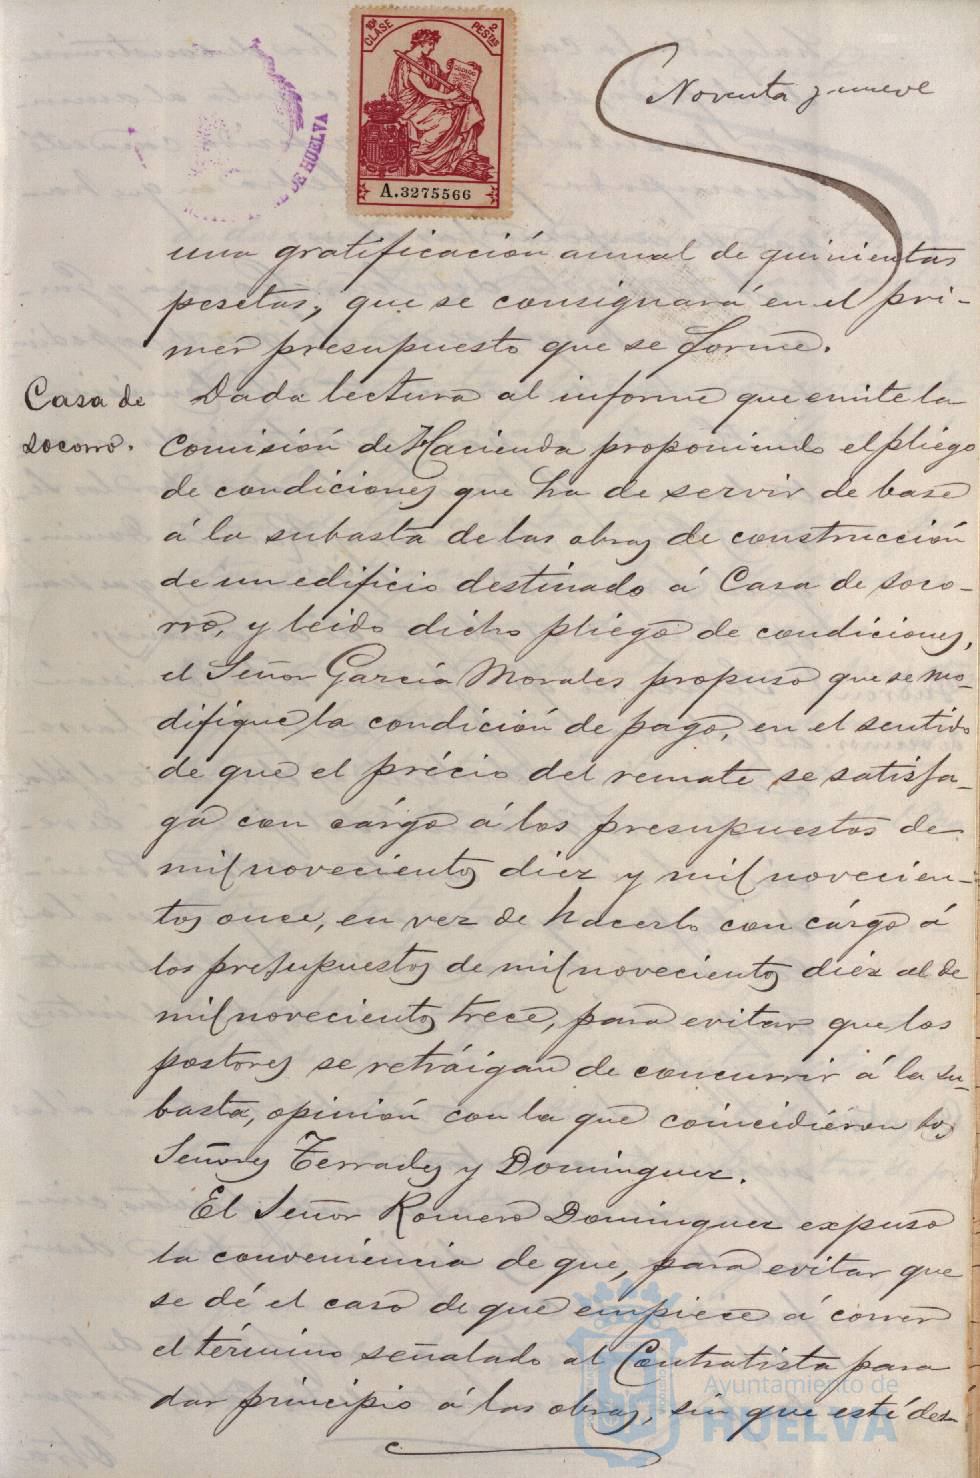 Noventa y nueve
10ª CLASE
2 PESTAS
A.3275566
DE HUELVA
una gratificación anual de quinientas
pesetas, que se consignará en el pri-
mer presupuesto que se forme.
Casa de
socorro.
Dada lectura al informe que emite la
Comisión de Hacienda proponiendo el pliego
de condiciones que ha de servir de base
á la subasta de las obras de construcción
de un edificio destinado á Casa de soco-
rro, y leido dicho pliego de condiciones,
el Señor García Morales propuso que se mo-
difique la condición de pago, en el sentido
de que el précio del remate se satisfa-
ga con cárgo á los presupuestos de
mil novecientos diez y mil novecien-
tos once, en vez de hacerlo con cárgo á
los presupuestos de mil novecientos diez al de
mil novecientos trece, para evitar que los
postores se retráigan de concurrir á la su-
basta, opinión con la que coincidiéron los
Señores Terrades y Dominguez.
El Señor Romero Dominguez expuso
la conveniencia de que, para evitar que
se dé el caso de que empiece á correr
el término señalado al Contratista para
dar principio á las obras, sin que esté des-
Ayuntamiento de
HUELVA